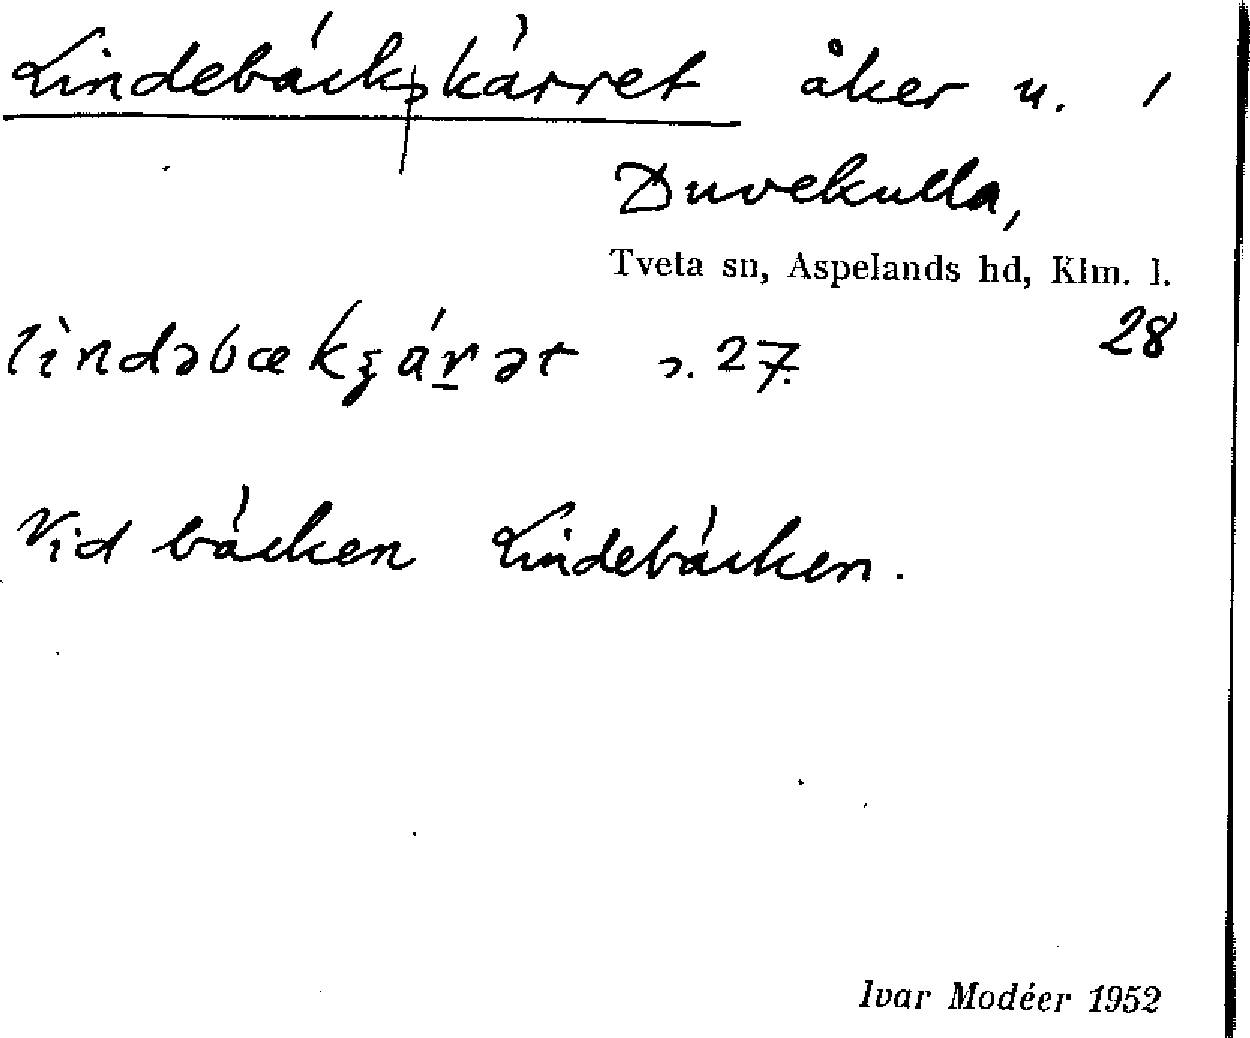 Lindebäckskärret åker u. 1
Duvekulla,
Tveta sn, Aspelands hd, Klm. l.
28
lìndəbækʂáṟət 27.
Vid bäcken Lindebäcken.
Ivar Modéer 1952